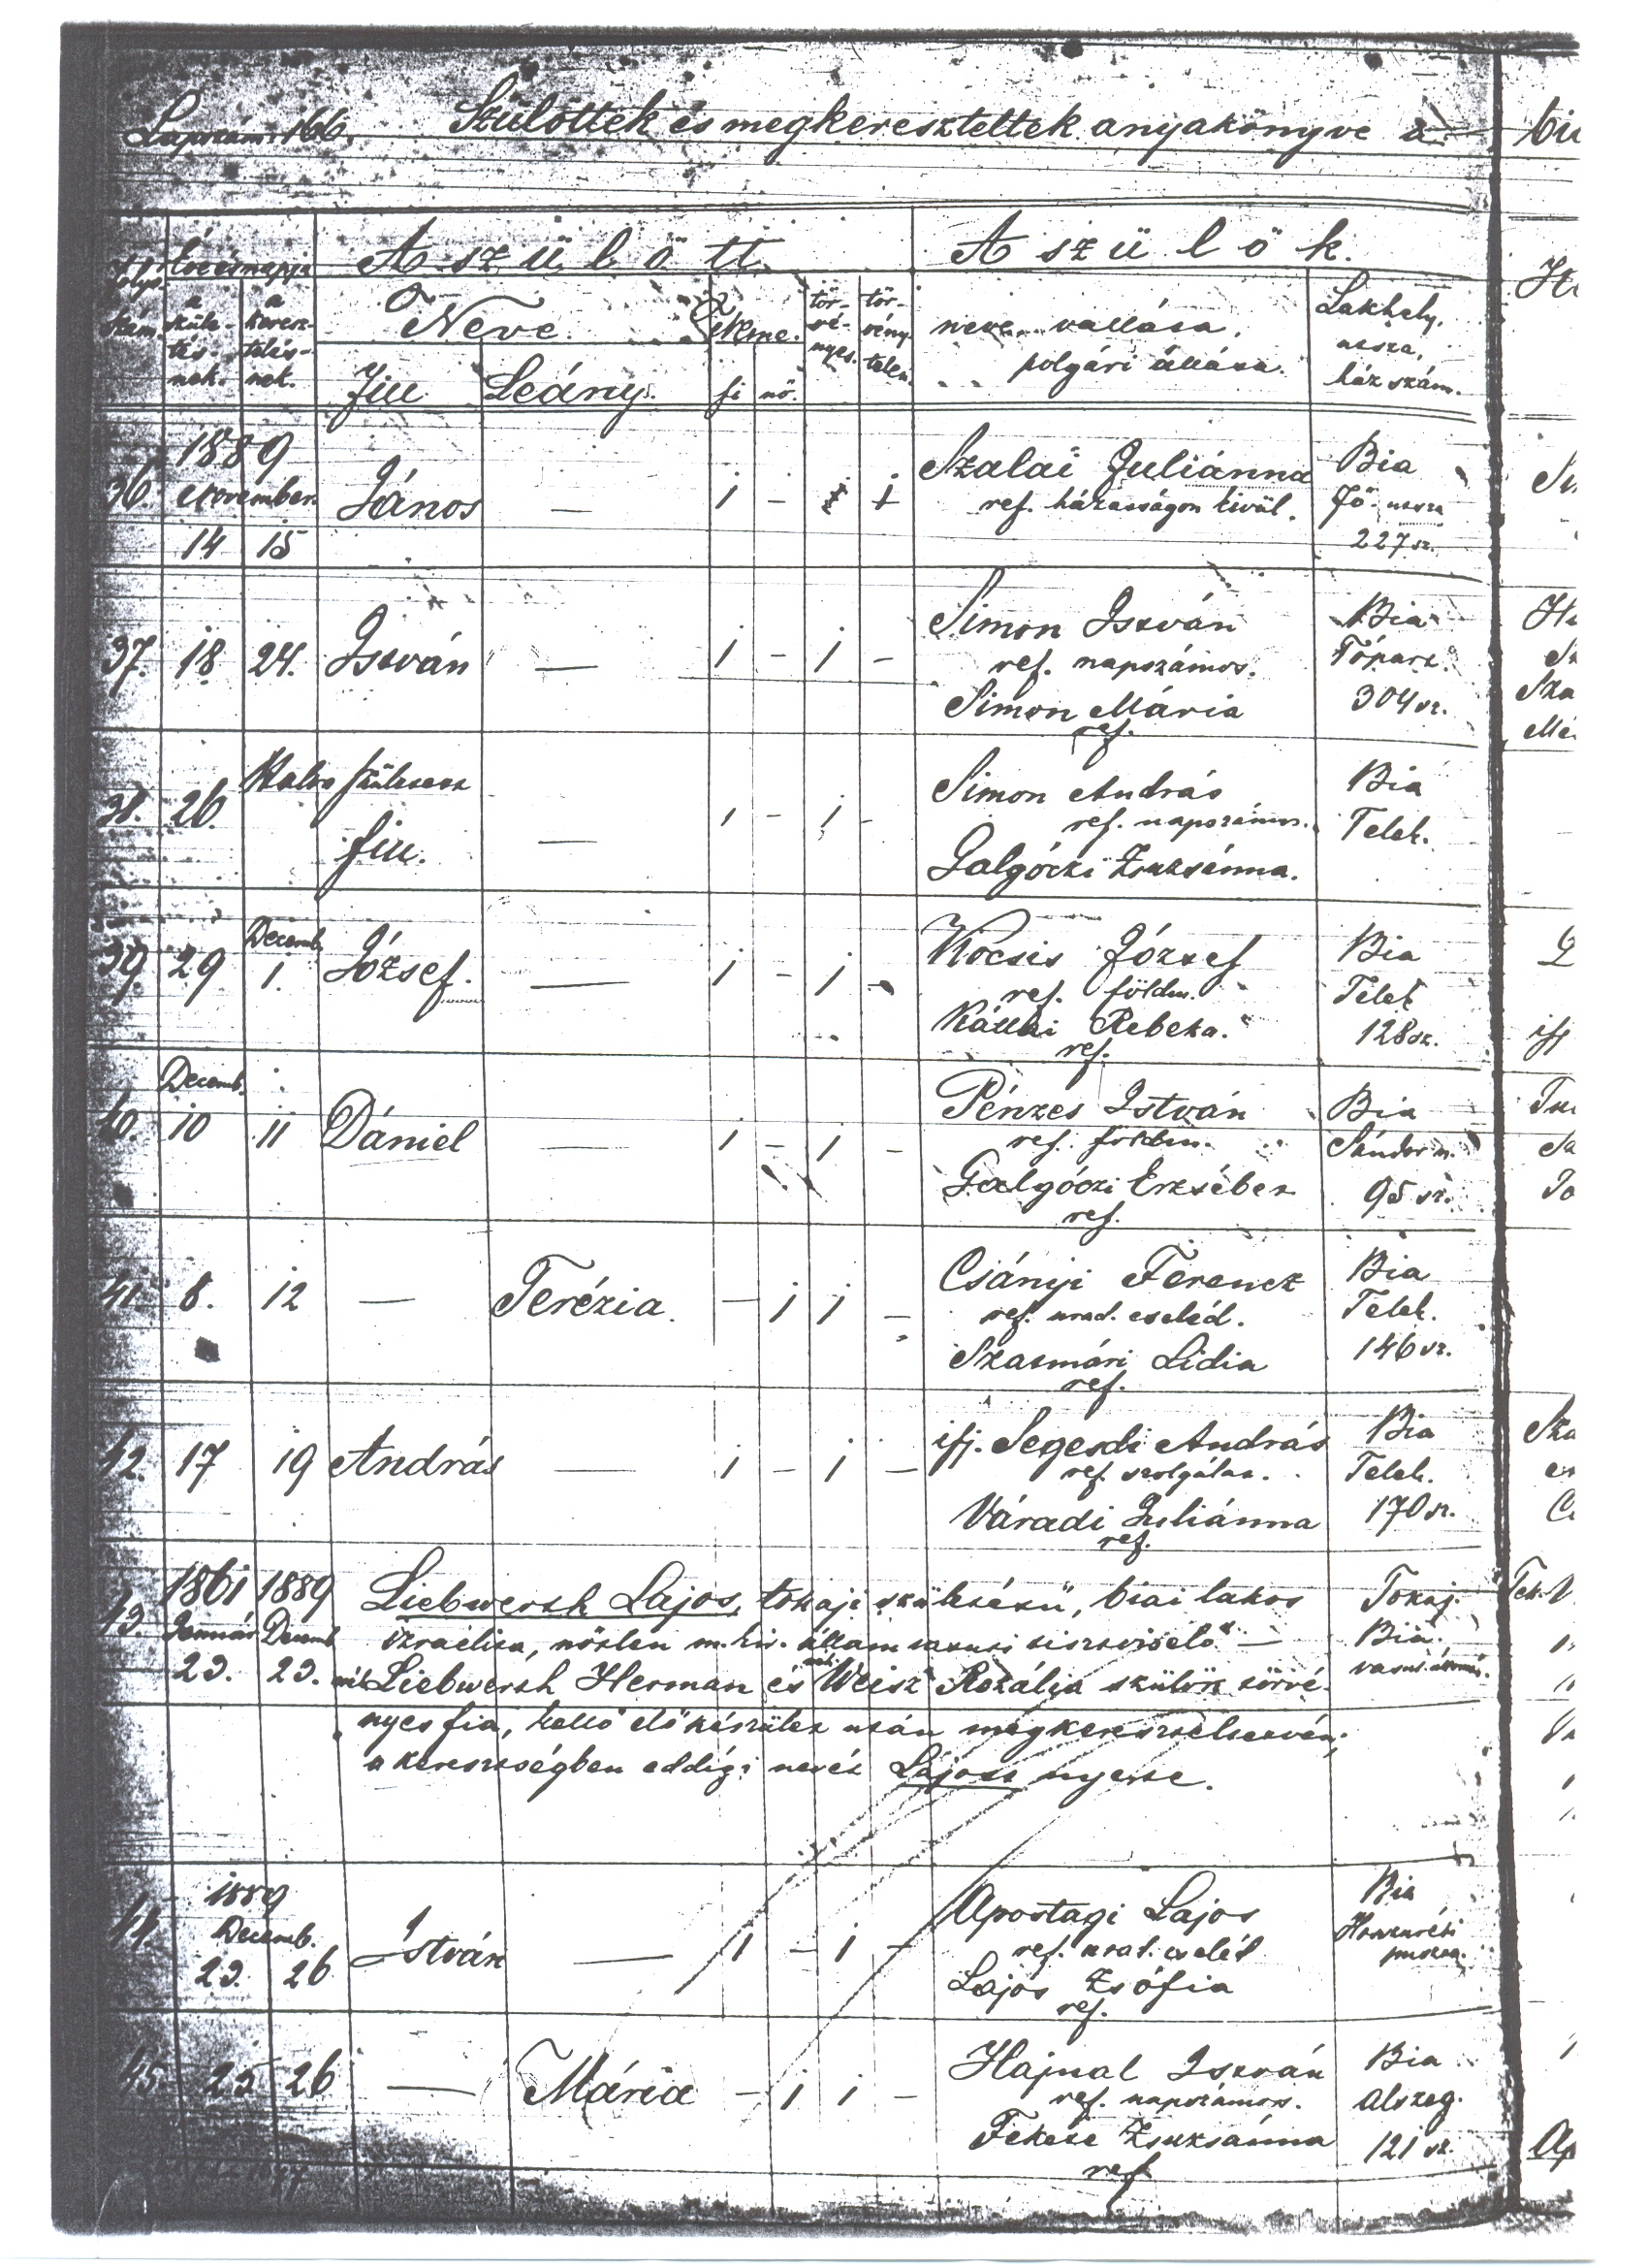 Lapszám: 166. Szülöttek és megkereszteltek anyakönyve a bia
foly. szám
Év és napja
a szüle- tés- nek.
a keresz- telés- nek.
A szülött
Neve.
Fiu Leány.
Neme.
fi nő.
tör- vé- nyes.
tör- vény- telen.
A szülők.
neve, vallása,
polgári állása.
Lakhely,
utcza,
ház szám.
1889
36. November János — 1 – 1 Szalai Juliánna Bia
ref. házasságon kivül. Fő utcza
14 15 227 sz.
37. 18 24. István — 1 – 1 – Simon István Bia
ref. napszámos. Tópart.
Simon Mária 304 sz.
ref.
38. 26. Halva született
fiu. — 1 – 1 – Simon András Bia
ref. napszámos. Telek.
Galgóczi Zsuzsánna.
39. 29 Decemb. 1. József. — 1 – 1 – Kocsis József Bia
ref. földm. Telek
Kállai Rebeka. 128 sz.
ref.
Decemb.
40. 10 11 Dániel — 1 – 1 – Pénzes István Bia
ref. földm. Sándor u.
Galgóczi Erzsébet 95 sz.
ref.
41. 8. 12 — Terézia. – 1 1 – Csányi Ferencz Bia
ref. urad. cseléd. Telek.
Szatmári Lidia 146 sz.
ref.
42. 17 19 András — 1 – 1 – ifj. Segesdi András Bia
ref. szolgálat. Telek.
Váradi Juliánna 170 sz.
ref.
43. 1861 1889 Liebwerth Lajos, tokaji születésü, biai lakos Tokaj.
Január Decemb izraelita, nőtlen m. kir. állam vasuti tisztviselő — Bia,
23. 23. Liebwerth Herman és Weisz Rozália szülők törvé- vasut
nyes fia, kellő előkészület után megkereszteltetvén,
a keresztségben eddigi nevét Lajost nyerte.
1889
44. Decemb. István — 1 – 1 – Apostagi Lajos Bia
23. 26 ref. urad. cseléd puszta.
Lajos Zsófia
ref.
45. 25 26 — Mária – 1 1 – Hajnal István Bia
ref. napszámos. Alszeg.
Fekete Zsuzsánna 121 sz.
ref.